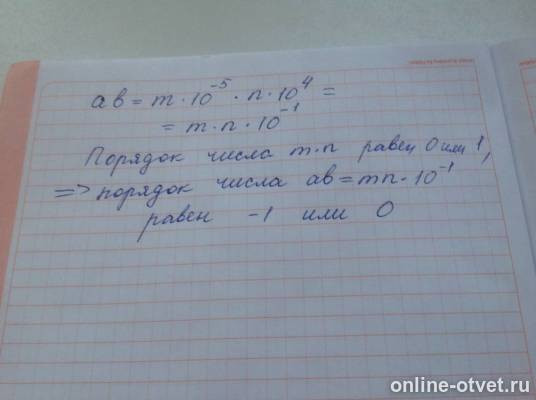 ab = m · 10⁻⁵ · n · 10⁴ =
= m · n · 10⁻¹
Порядок числа m·n равен 0 или 1,
=> порядок числа ab = mn · 10⁻¹
равен -1 или 0
online-otvet.ru